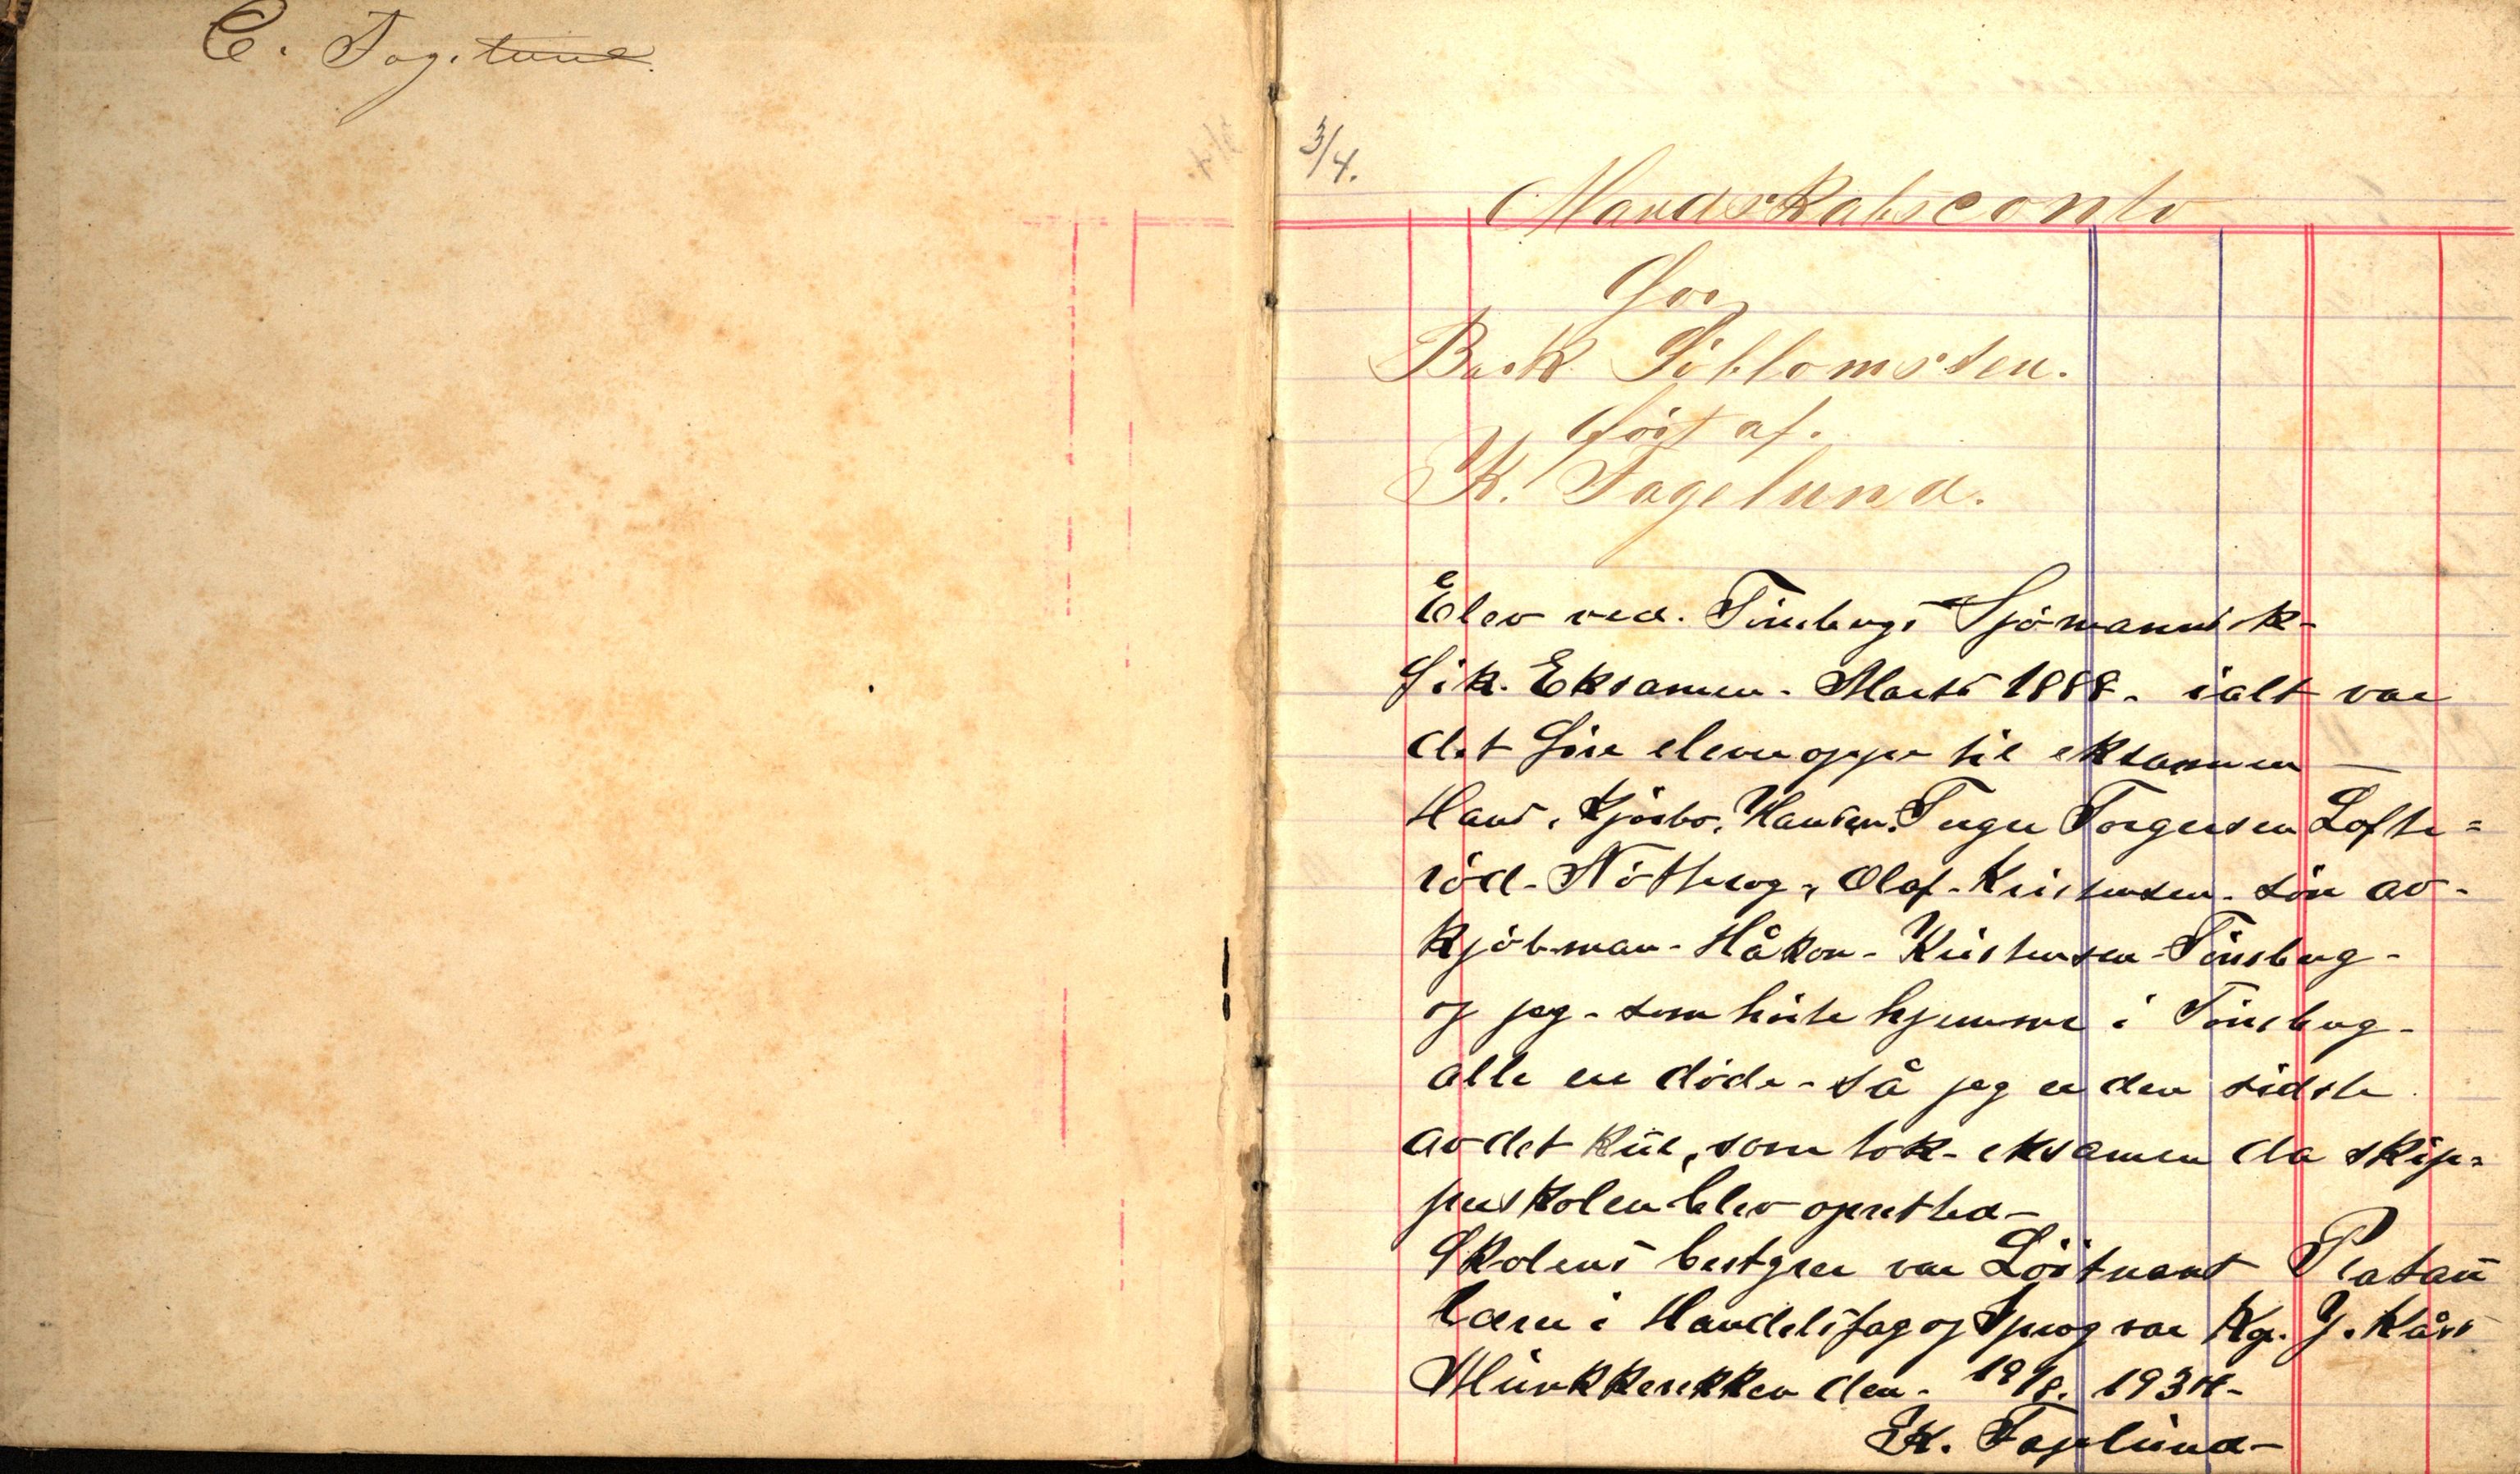 C. Fagelund
3/4.
Mandskabsconto
for
Bark Söblomsten.
fört af.
K. Fagelund.
Elev ved. Tönsbergs Sjömannsk-
fik. Eksamen. Marts 1888. ialt var
det fire elever oppe til eksamen —
Hans. Kjösbo. Hansen. Torger Torgersen Lofte=
röd. Nötteröy, Olaf. Kristensen. sön av-
kjöbman. Håkon. Kristensen Tönsberg-
og jeg. som hörte hjemme i Tönsberg-
alle er döde. så jeg er den sidste
av det kul, som tok. eksamen da skip=
perskolen blev opretted-
Skolens bestyrer var Löitnant
lærer i Handelsfag og Sprog var Kp. J. Kårs
Munkkerekken den. 19/8. 1934-
K. Fagelund-